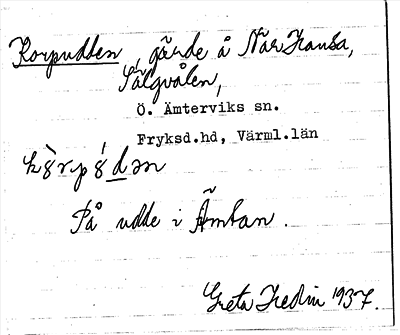 Korpudden, gärde å När Hansa,
Sälgvålen,
Ö. Ämterviks sn.
Fryksd.hd, Värml.län
På udde i Ämtan.
Greta Hedin 1937.